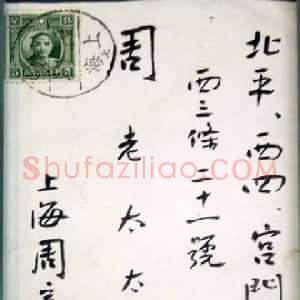 北平、西四、宮門
西三條二十一號
周老太太
上海周
上海
Shufaziliao.COM